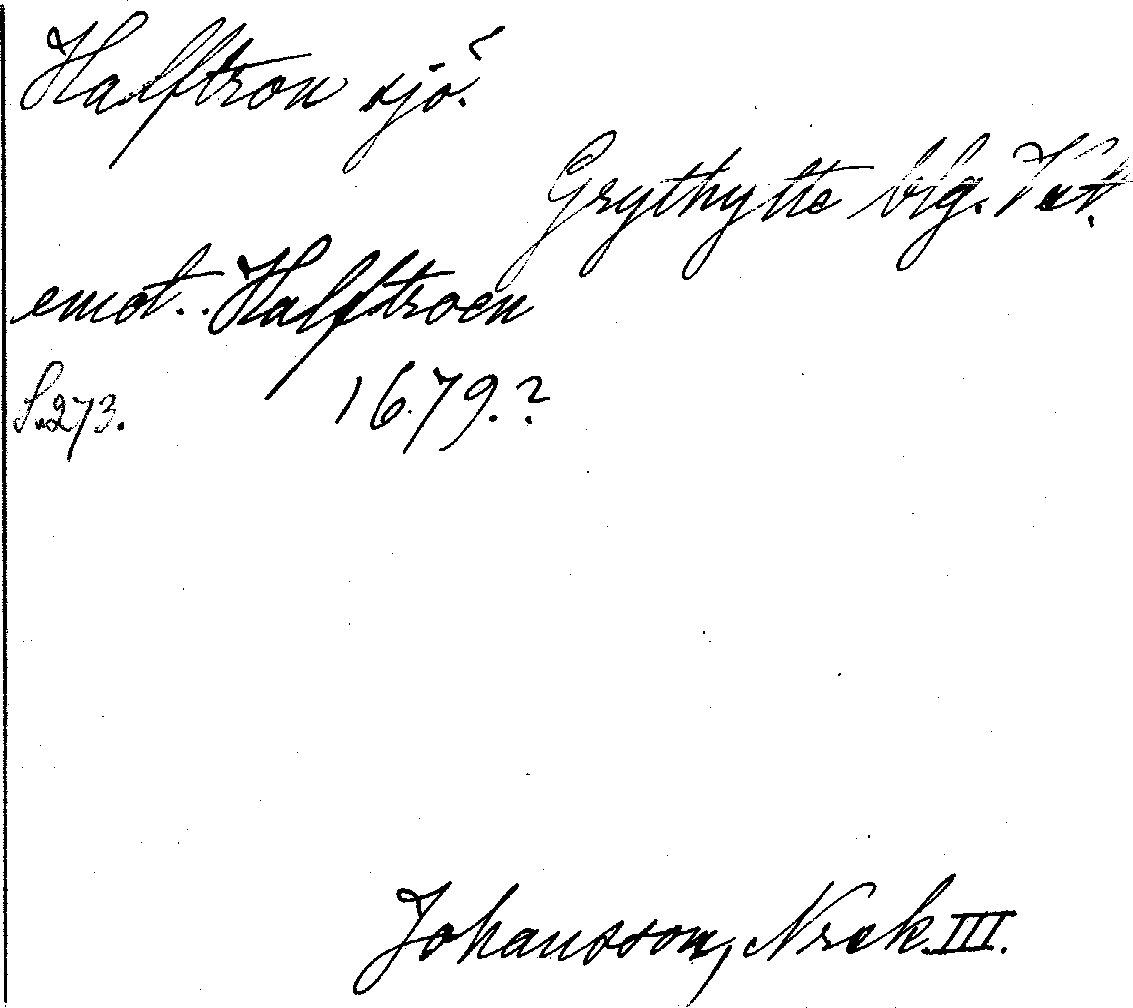 Halftron sjö.
Grythytte blg. Vst.
emot.. Halftroen
S. 273. 1679.?
Johansson, Nrck. III.